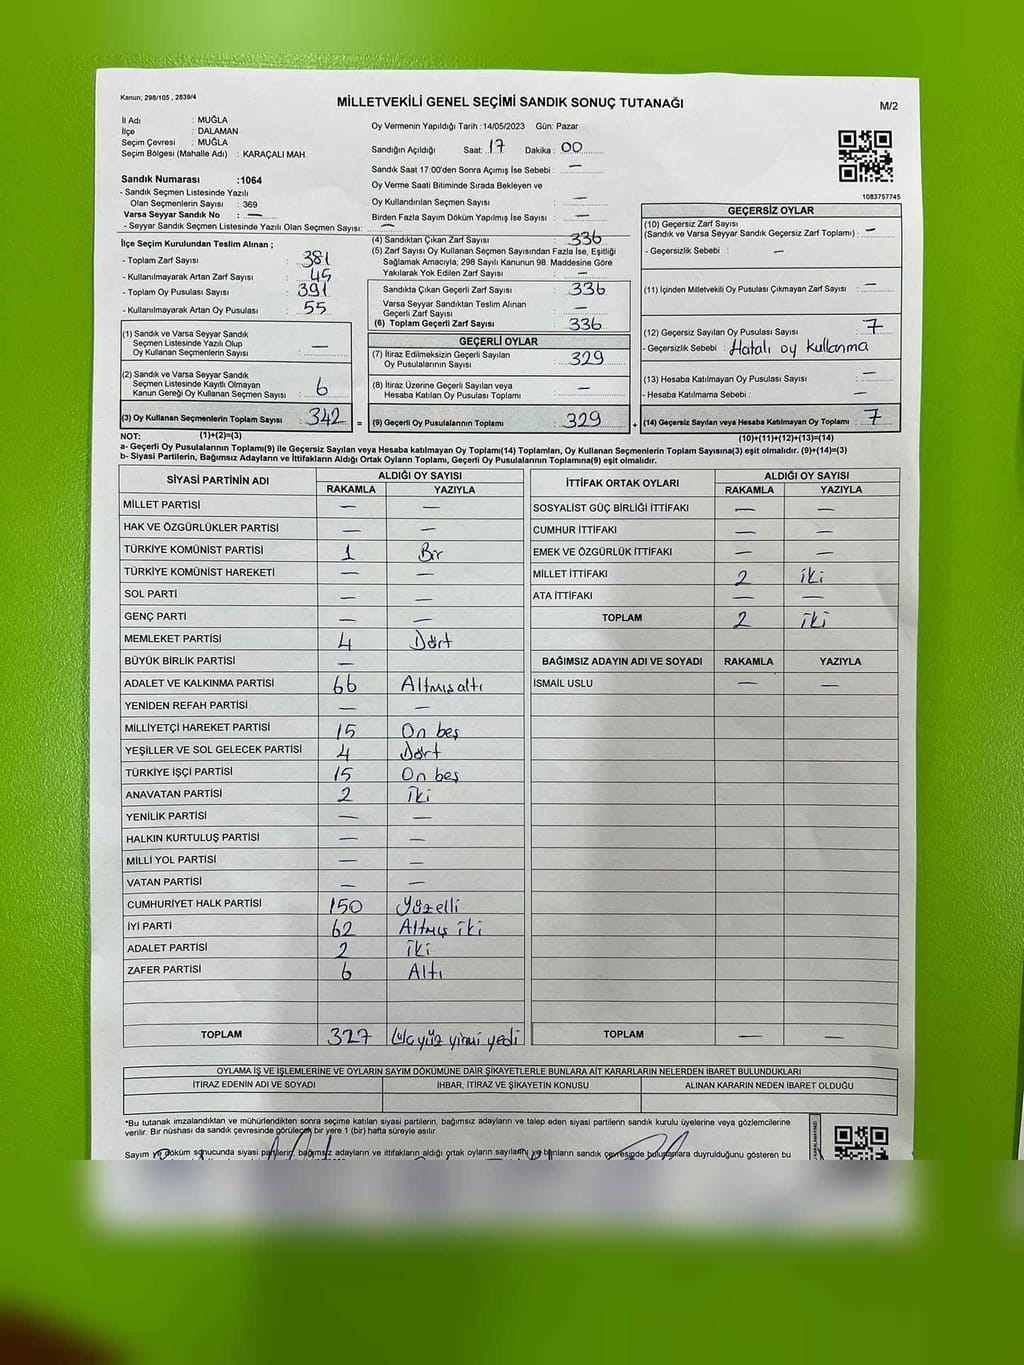 Kanun; 298/105 , 2839/4
MİLLETVEKİLİ GENEL SEÇİMİ SANDIK SONUÇ TUTANAĞI
M/2
İl Adı : MUĞLA
İlçe : DALAMAN
Seçim Çevresi : MUĞLA
Seçim Bölgesi (Mahalle Adı) : KARAÇALI MAH.
Sandık Numarası :1064
- Sandık Seçmen Listesinde Yazılı
Olan Seçmenlerin Sayısı : 369
Varsa Seyyar Sandık No : —
- Seyyar Sandık Seçmen Listesinde Yazılı Olan Seçmen Sayısı: —
Oy Vermenin Yapıldığı Tarih :14/05/2023 Gün: Pazar
Sandığın Açıldığı Saat: 17 Dakika : 00
Sandık Saat 17:00'den Sonra Açımış İse Sebebi : —
Oy Verme Saati Bitiminde Sırada Bekleyen ve
Oy Kullandırılan Seçmen Sayısı : —
Birden Fazla Sayım Döküm Yapılmış İse Sayısı : —
1083757745
İlçe Seçim Kurulundan Teslim Alınan ;
- Toplam Zarf Sayısı : 381
- Kullanılmayarak Artan Zarf Sayısı : 45
- Toplam Oy Pusulası Sayısı : 391
- Kullanılmayarak Artan Oy Pusulası : 55
(1) Sandık ve Varsa Seyyar Sandık
Seçmen Listesinde Yazılı Olup
Oy Kullanan Seçmenlerin Sayısı : —
(2) Sandık ve Varsa Seyyar Sandık
Seçmen Listesinde Kayıtlı Olmayan
Kanun Gereği Oy Kullanan Seçmen Sayısı : 6
(3) Oy Kullanan Seçmenlerin Toplam Sayısı : 342
(4) Sandıktan Çıkan Zarf Sayısı : 336
(5) Zarf Sayısı Oy Kullanan Seçmen Sayısından Fazla İse, Eşitliği
Sağlamak Amacıyla; 298 Sayılı Kanunun 98. Maddesine Göre
Yakılarak Yok Edilen Zarf Sayısı : —
Sandıkta Çıkan Geçerli Zarf Sayısı : 336
Varsa Seyyar Sandıktan Teslim Alınan
Geçerli Zarf Sayısı : —
(6) Toplam Geçerli Zarf Sayısı : 336
GEÇERLİ OYLAR
(7) İtiraz Edilmeksizin Geçerli Sayılan
Oy Pusulalarının Sayısı : 329
(8) İtiraz Üzerine Geçerli Sayılan veya
Hesaba Katılan Oy Pusulası Toplamı : —
= (9) Geçerli Oy Pusulalarının Toplamı : 329
GEÇERSİZ OYLAR
(10) Geçersiz Zarf Sayısı
(Sandık ve Varsa Seyyar Sandık Geçersiz Zarf Toplamı) : —
- Geçersizlik Sebebi : —
(11) İçinden Milletvekili Oy Pusulası Çıkmayan Zarf Sayısı : —
(12) Geçersiz Sayılan Oy Pusulası Sayısı : 7
- Geçersizlik Sebebi : Hatalı oy kullanma
(13) Hesaba Katılmayan Oy Pusulası Sayısı : —
- Hesaba Katılmama Sebebi : —
+ (14) Geçersiz Sayılan veya Hesaba Katılmayan Oy Toplamı : 7
NOT: (1)+(2)=(3)
(10)+(11)+(12)+(13)=(14)
a- Geçerli Oy Pusulalarının Toplamı(9) ile Geçersiz Sayılan veya Hesaba katılmayan Oy Toplamı(14) Toplamları, Oy Kullanan Seçmenlerin Toplam Sayısına(3) eşit olmalıdır. (9)+(14)=(3)
b- Siyasi Partilerin, Bağımsız Adayların ve İttifakların Aldığı Ortak Oyların Toplamı, Geçerli Oy Pusulalarının Toplamına(9) eşit olmalıdır.
SİYASİ PARTİNİN ADI ALDIĞI OY SAYISI
RAKAMLA YAZIYLA
MİLLET PARTİSİ — —
HAK VE ÖZGÜRLÜKLER PARTİSİ — —
TÜRKİYE KOMÜNİST PARTİSİ 1 Bir
TÜRKİYE KOMÜNİST HAREKETİ — —
SOL PARTİ — —
GENÇ PARTİ — —
MEMLEKET PARTİSİ 4 Dört
BÜYÜK BİRLİK PARTİSİ —
ADALET VE KALKINMA PARTİSİ 66 Altmışaltı
YENİDEN REFAH PARTİSİ — —
MİLLİYETÇİ HAREKET PARTİSİ 15 On beş
YEŞİLLER VE SOL GELECEK PARTİSİ 4 Dört
TÜRKİYE İŞÇİ PARTİSİ 15 On beş
ANAVATAN PARTİSİ 2 İki
YENİLİK PARTİSİ — —
HALKIN KURTULUŞ PARTİSİ — —
MİLLİ YOL PARTİSİ — —
VATAN PARTİSİ — —
CUMHURİYET HALK PARTİSİ 150 Yüzelli
İYİ PARTİ 62 Altmış iki
ADALET PARTİSİ 2 İki
ZAFER PARTİSİ 6 Altı
TOPLAM 327 Üçyüz yirmi yedi
İTTİFAK ORTAK OYLARI ALDIĞI OY SAYISI
RAKAMLA YAZIYLA
SOSYALİST GÜÇ BİRLİĞİ İTTİFAKI — —
CUMHUR İTTİFAKI — —
EMEK VE ÖZGÜRLÜK İTTİFAKI — —
MİLLET İTTİFAKI 2 iki
ATA İTTİFAKI — —
TOPLAM 2 iki
BAĞIMSIZ ADAYIN ADI VE SOYADI RAKAMLA YAZIYLA
İSMAİL USLU — —
TOPLAM — —
OYLAMA İŞ VE İŞLEMLERİNE VE OYLARIN SAYIM DÖKÜMÜNE DAİR ŞİKAYETLERLE BUNLARA AİT KARARLARIN NELERDEN İBARET BULUNDUKLARI
İTİRAZ EDENİN ADI VE SOYADI İHBAR, İTİRAZ VE ŞİKAYETİN KONUSU ALINAN KARARIN NEDEN İBARET OLDUĞU
*Bu tutanak imzalandıktan ve mühürlendikten sonra seçime katılan siyasi partilerin, bağımsız adayların ve talep eden siyasi partilerin sandık kurulu üyelerine veya gözlemcilerine
verilir. Bir nüshası da sandık çevresinde görülecek bir yere 1 (bir) hafta süreyle asılır.
Sayım ve döküm sonucunda siyasi partilerin, bağımsız adayların ve ittifakların aldığı ortak oyların sayılarını ve bunların sandık çevresinde bulunanlara duyrulduğunu gösteren bu